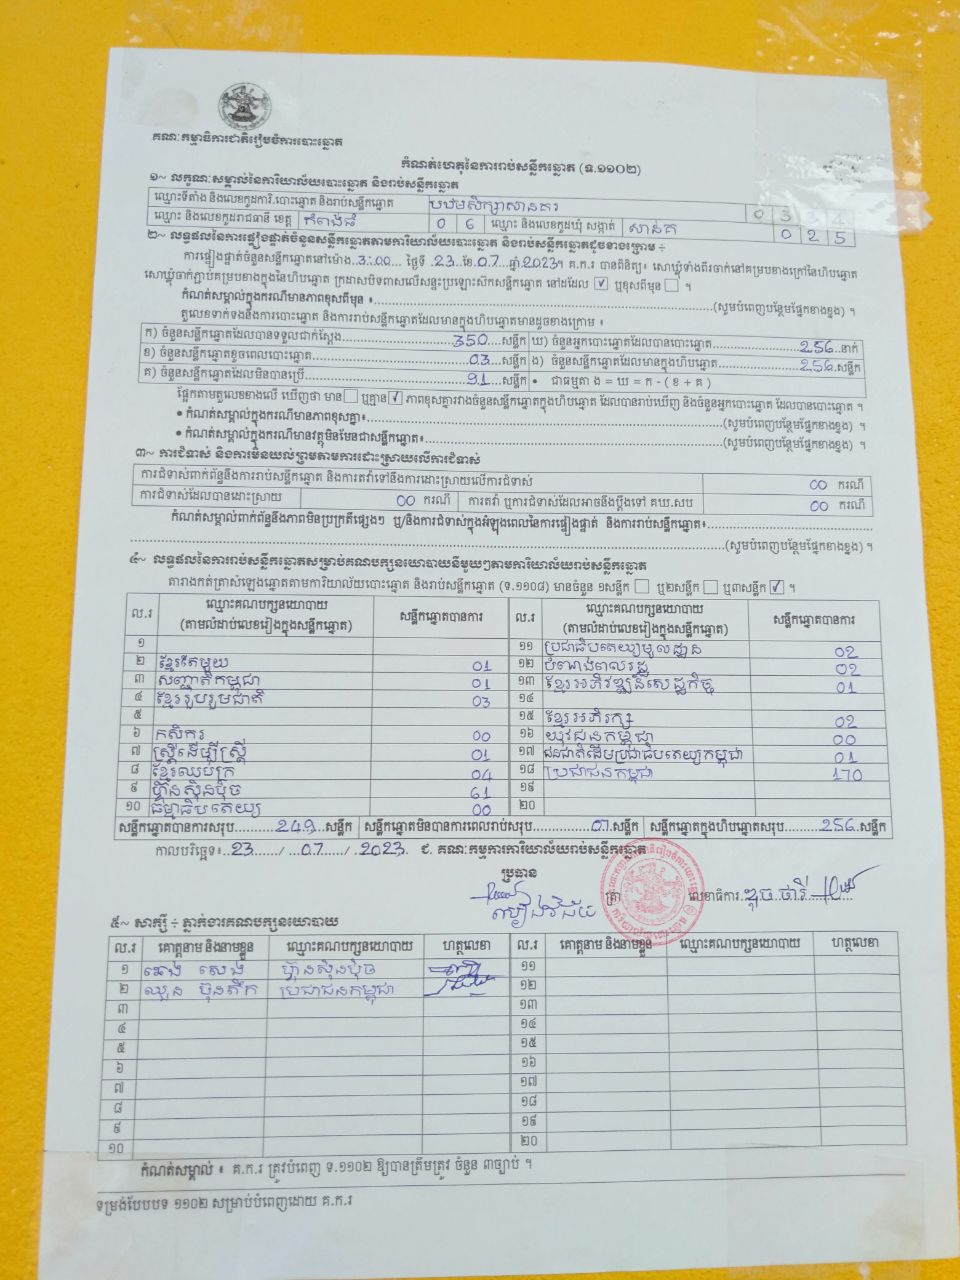 គណៈកម្មាធិការជាតិរៀបចំការបោះឆ្នោត
កំណត់ហេតុនៃការរាប់សន្លឹកឆ្នោត (ទ.១១០២)
១~ លក្ខណៈសម្គាល់នៃការិយាល័យបោះឆ្នោត និងរាប់សន្លឹកឆ្នោត
ឈ្មោះទីតាំង និងលេខកូដការិ.បោះឆ្នោត និងរាប់សន្លឹកឆ្នោត បឋមសិក្សាសានគរ 0 3 3 4
ឈ្មោះ និងលេខកូដរាជធានី ខេត្ត កំពង់ធំ 0 6 ឈ្មោះ និងលេខកូដឃុំ សង្កាត់ សាន់គ 0 2 5
២~ លទ្ធផលនៃការផ្ទៀងផ្ទាត់ចំនួនសន្លឹកឆ្នោតតាមការិយាល័យបោះឆ្នោត និងរាប់សន្លឹកឆ្នោតដូចខាងក្រោម ÷
ការផ្ទៀងផ្ទាត់ចំនួនសន្លឹកឆ្នោតនៅម៉ោង..3:00... ថ្ងៃទី .23..ខែ.07...ឆ្នាំ.2023។ គ.ក.រ បានពិនិត្យ៖ សោឃ្លុំទាំងពីរចាក់នៅគម្របខាងក្រៅនៃហិបឆ្នោត
សោឃ្លុំចាក់ភ្ជាប់គម្របខាងក្នុងនៃហិបឆ្នោត ក្រដាសបិទពាសលើសន្ទះប្រឡោះស៊កសន្លឹកឆ្នោត នៅដដែល ☑ ឬខុសពីមុន ☐ ។
កំណត់សម្គាល់ក្នុងករណីមានភាពខុសពីមុន ៖ (សូមបំពេញបន្ថែមផ្នែកខាងខ្នង) ។
តួលេខទាក់ទងនឹងការបោះឆ្នោត និងការរាប់សន្លឹកឆ្នោតដែលមានក្នុងហិបឆ្នោតមានដូចខាងក្រោម ៖
ក) ចំនួនសន្លឹកឆ្នោតដែលបានទទួលជាក់ស្តែង 350 សន្លឹក ឃ) ចំនួនអ្នកបោះឆ្នោតដែលបានបោះឆ្នោត 256 នាក់
ខ) ចំនួនសន្លឹកឆ្នោតខូចពេលបោះឆ្នោត 03 សន្លឹក ង) ចំនួនសន្លឹកឆ្នោតដែលមានក្នុងហិបឆ្នោត 256 សន្លឹក
គ) ចំនួនសន្លឹកឆ្នោតដែលមិនបានប្រើ 91 សន្លឹក • ជាធម្មតា ង = ឃ = ក - ( ខ + គ )
ផ្អែកតាមតួលេខខាងលើ ឃើញថា មាន ☐ ឬគ្មាន ☑ ភាពខុសគ្នារវាងចំនួនសន្លឹកឆ្នោតក្នុងហិបឆ្នោត ដែលបានរាប់ឃើញ និងចំនួនអ្នកបោះឆ្នោត ដែលបានបោះឆ្នោត ។
• កំណត់សម្គាល់ក្នុងករណីមានភាពខុសគ្នា៖ (សូមបំពេញបន្ថែមផ្នែកខាងខ្នង) ។
• កំណត់សម្គាល់ក្នុងករណីមានវត្ថុមិនមែនជាសន្លឹកឆ្នោត៖ (សូមបំពេញបន្ថែមផ្នែកខាងខ្នង) ។
៣~ ការជំទាស់ និងការមិនយល់ព្រមតាមការដោះស្រាយលើការជំទាស់
ការជំទាស់ពាក់ព័ន្ធនឹងការរាប់សន្លឹកឆ្នោត និងការតវ៉ាទៅនឹងការដោះស្រាយលើការជំទាស់ 00 ករណី
ការជំទាស់ដែលបានដោះស្រាយ 00 ករណី ការតវ៉ា ឬការជំទាស់ដែលអាចនឹងប្តឹងទៅ គឃ.សប 00 ករណី
កំណត់សម្គាល់ពាក់ព័ន្ធនឹងភាពមិនប្រក្រតីផ្សេងៗ ឬ/និងការជំទាស់ក្នុងអំឡុងពេលនៃការផ្ទៀងផ្ទាត់ និងការរាប់សន្លឹកឆ្នោត៖
(សូមបំពេញបន្ថែមផ្នែកខាងខ្នង) ។
៤~ លទ្ធផលនៃការរាប់សន្លឹកឆ្នោតសម្រាប់គណបក្សនយោបាយនីមួយៗតាមការិយាល័យរាប់សន្លឹកឆ្នោត
តារាងកត់ត្រាសំឡេងឆ្នោតតាមការិយាល័យបោះឆ្នោត និងរាប់សន្លឹកឆ្នោត (ទ.១១០៨) មានចំនួន ១សន្លឹក ☐ ឬ២សន្លឹក ☐ ឬ៣សន្លឹក ☑ ។
ល.រ ឈ្មោះគណបក្សនយោបាយ (តាមលំដាប់លេខរៀងក្នុងសន្លឹកឆ្នោត) សន្លឹកឆ្នោតបានការ ល.រ ឈ្មោះគណបក្សនយោបាយ (តាមលំដាប់លេខរៀងក្នុងសន្លឹកឆ្នោត) សន្លឹកឆ្នោតបានការ
១ ១១ ប្រជាធិបតេយ្យមូលដ្ឋាន 02
២ ខ្មែរតែមួយ 01 ១២ បំណងពលរដ្ឋ 02
៣ សញ្ជាតិកម្ពុជា 01 ១៣ ខ្មែរអភិវឌ្ឍន៍សេដ្ឋកិច្ច 01
៤ ខ្មែររួបរួមជាតិ 03 ១៤
៥ ១៥ ខ្មែរអភិរក្ស 02
៦ កសិករ 00 ១៦ យុវជនកម្ពុជា 00
៧ ស្ត្រីដើម្បីស្ត្រី 01 ១៧ ជនជាតិដើមប្រជាធិបតេយ្យកម្ពុជា 01
៨ ខ្មែរឈប់ក្រ 04 ១៨ ប្រជាជនកម្ពុជា 170
៩ ហ៊្វុនស៊ិនប៉ិច 61 ១៩
១០ ធម្មាធិបតេយ្យ 00 ២០
សន្លឹកឆ្នោតបានការសរុប 249 សន្លឹក សន្លឹកឆ្នោតមិនបានការពេលរាប់សរុប 07 សន្លឹក សន្លឹកឆ្នោតក្នុងហិបឆ្នោតសរុប 256 សន្លឹក
កាលបរិច្ឆេទ៖ 23 / 07 / 2023 ជ. គណៈកម្មការការិយាល័យរាប់សន្លឹកឆ្នោត
ប្រធាន
ត្រា លេខាធិការ ឌុច ថារី
៥~ សាក្សី ÷ ភ្នាក់ងារគណបក្សនយោបាយ
ល.រ គោត្តនាម និងនាមខ្លួន ឈ្មោះគណបក្សនយោបាយ ហត្ថលេខា ល.រ គោត្តនាម និងនាមខ្លួន ឈ្មោះគណបក្សនយោបាយ ហត្ថលេខា
១ ឆេង សេង ហ៊្វុនស៊ិនប៉ិច ១១
២ ឈួន ប៊ុនតឹក ប្រជាជនកម្ពុជា ១២
៣ ១៣
៤ ១៤
៥ ១៥
៦ ១៦
៧ ១៧
៨ ១៨
៩ ១៩
១០ ២០
កំណត់សម្គាល់ ៖ គ.ក.រ ត្រូវបំពេញ ទ.១១០២ ឱ្យបានត្រឹមត្រូវ ចំនួន ៣ច្បាប់ ។
ទម្រង់បែបបទ ១១០២ សម្រាប់បំពេញដោយ គ.ក.រ